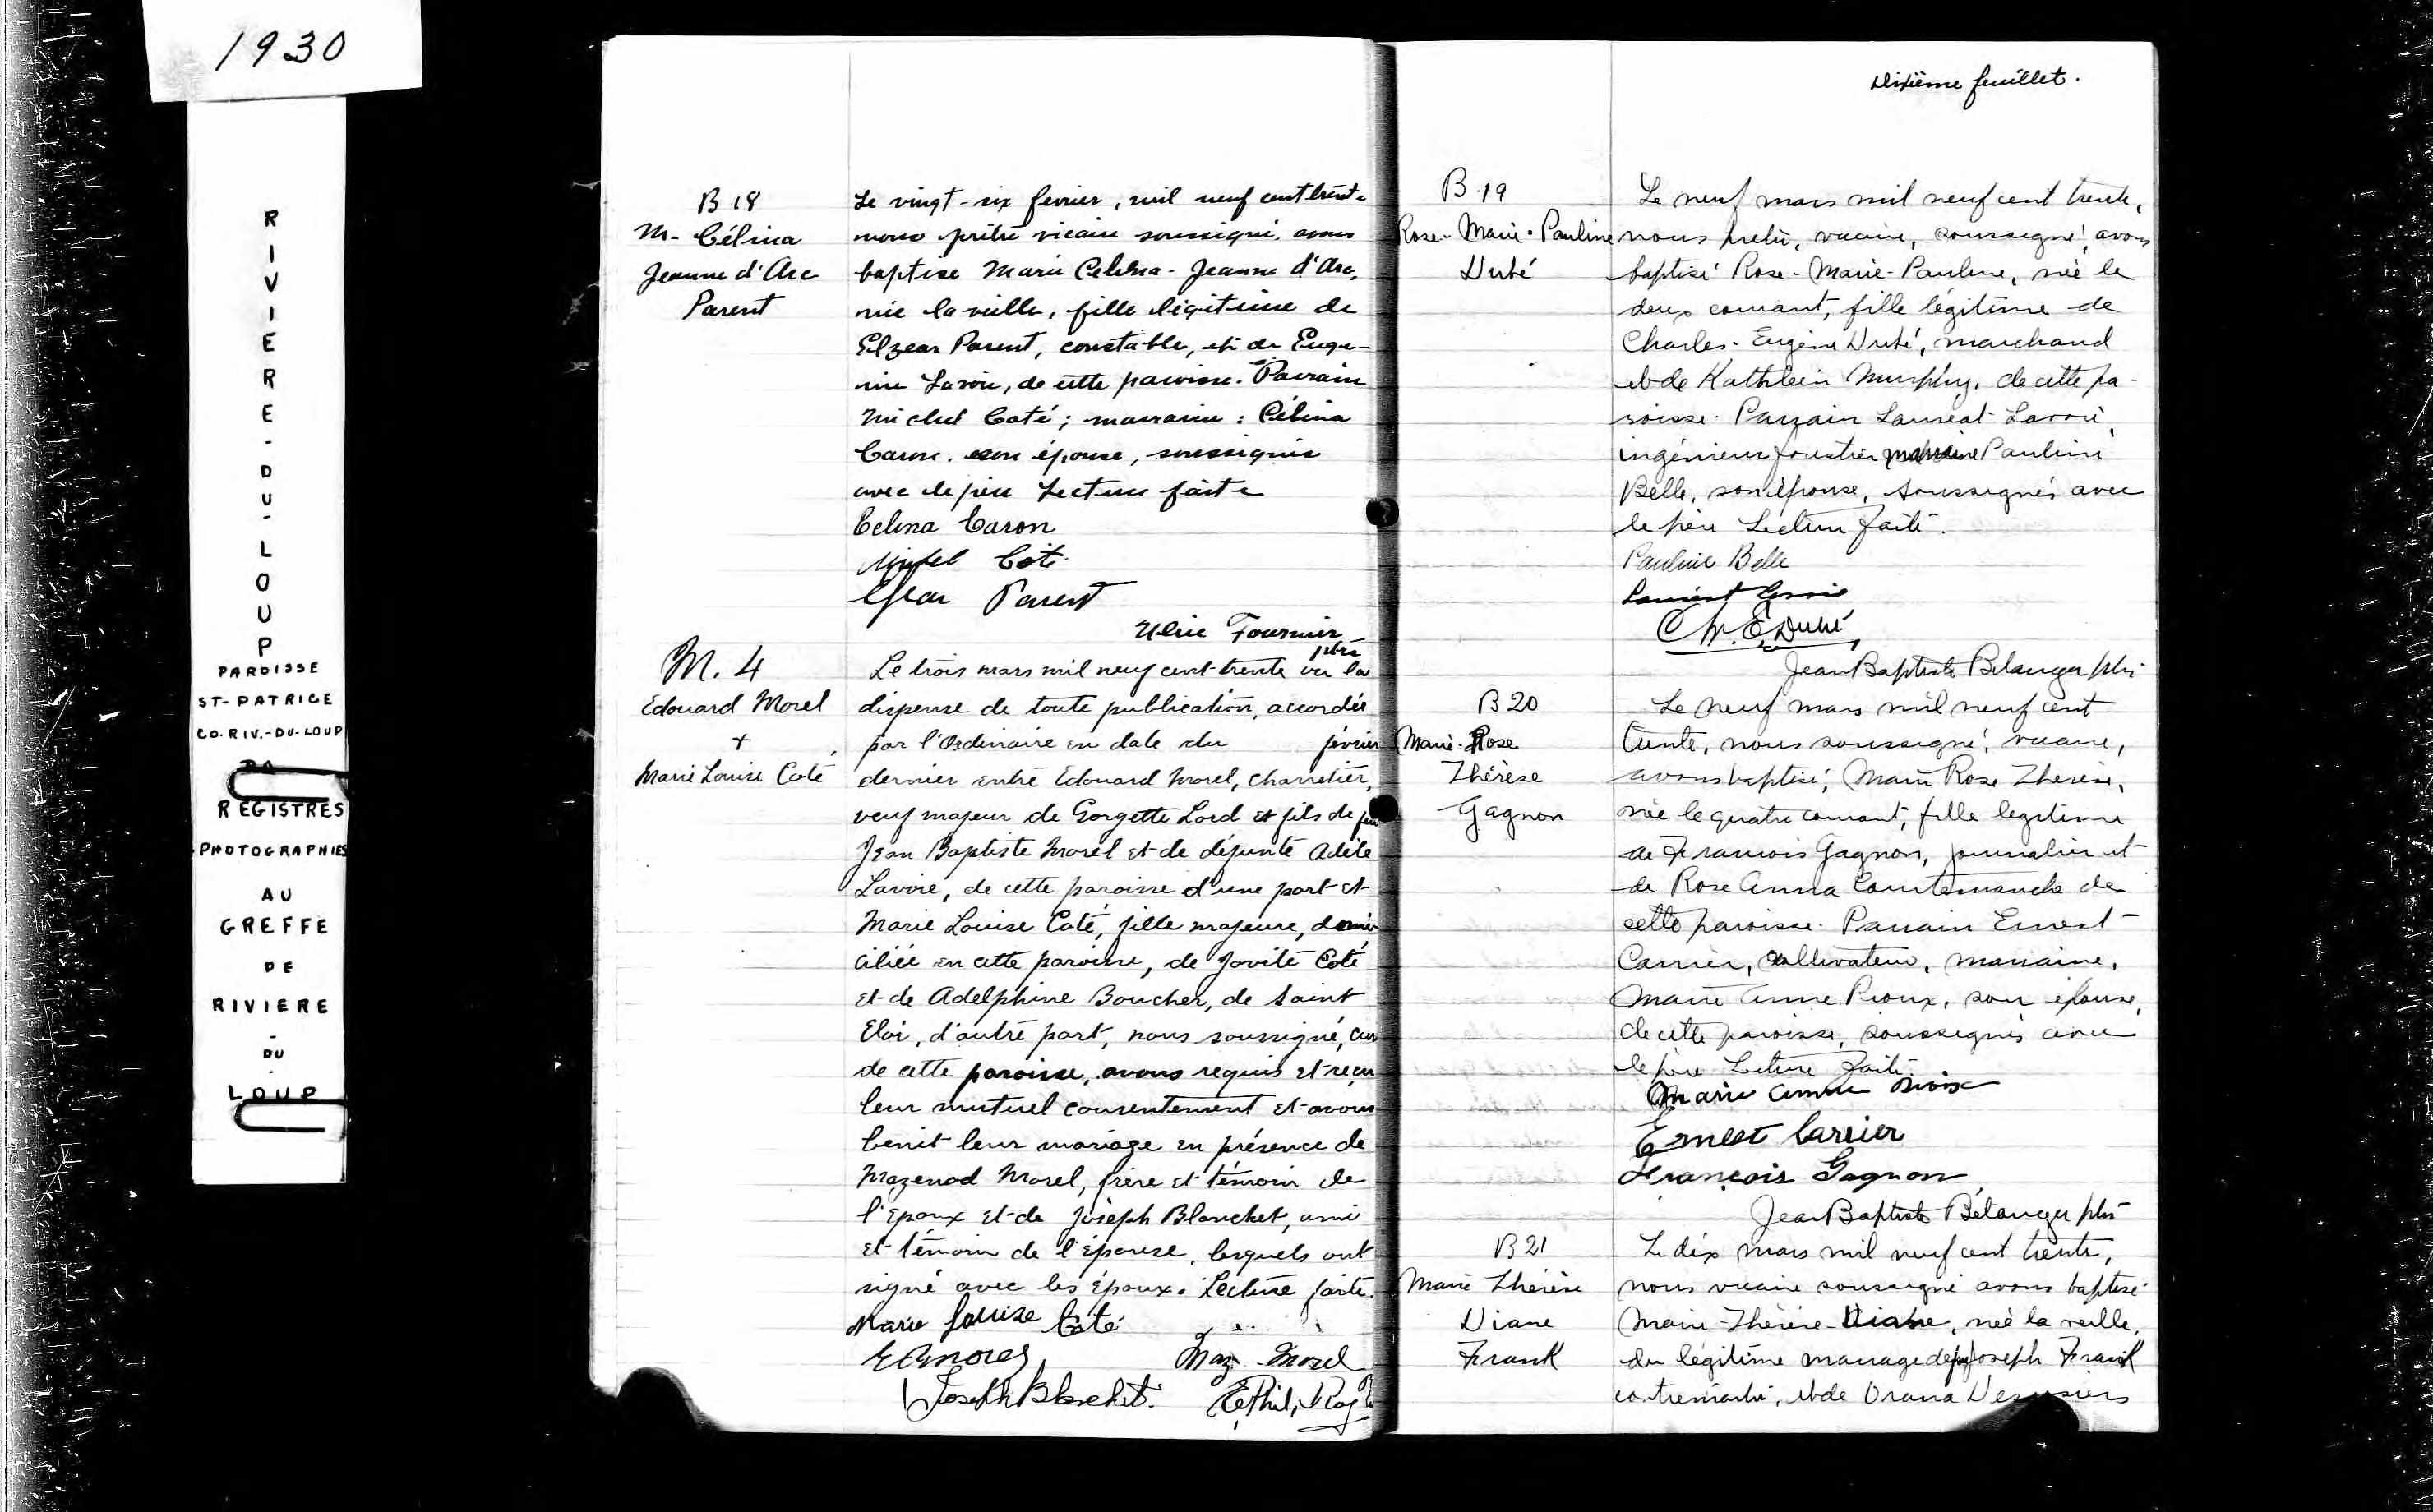 1930
RIVIERE-DU-LOUP
PAROISSE
ST-PATRICE
CO. RIV.-DU-LOUP
REGISTRES
PHOTOGRAPHIES
AU
GREFFE
DE
RIVIERE
-
DU
-
LOUP
B 18
M. Célina
Jeanne d'Arc
Parent
Le vingt-six fevrier, mil neuf cent trente
nous prêtre vicaire soussigné avons
baptise Marie Celina-Jeanne d'Arc,
née la veille, fille légitime de
Elzear Parent, constable, et de Euge-
nie Lavoie, de cette paroisse. Parrain
Michel Coté; marraine: Célina
Caron. son épouse, soussignés
avec le père Lecture faite
Celina Caron
Michel Coté
Parent
Ulric Fournier
ptre
M. 4
Edouard Morel
+
Marie Louise Coté
Le trois mars mil neuf cent trente vu la
dispense de toute publication, accordée
par l'Ordinaire en date du février
dernier entre Edouard Morel, charretier,
veuf majeur de Gorgette Lord et fils de feu
Jean Baptiste Morel et de défunte Adèle
Lavoie, de cette paroisse d'une part et
Marie Louise Coté, fille majeure, domi-
ciliée en cette paroisse, de Jovite Coté
et de Adelphine Boucher, de Saint
Eloi, d'autre part, nous soussigné, curé
de cette paroisse, avons requis et reçu
leur mutuel consentement et avons
benit leur mariage en présence de
Mazenod Morel, frère et témoin de
l'époux et de Joseph Blanchet, ami
et témoin de l'épouse, lesquels ont
signé avec les époux. Lecture faite.
Marie Louise Coté
Maz. Morel
Joseph Blanchet.
Dixième feuillet.
B.19
Rose-Marie-Pauline
Dubé
Le neuf mars mil neuf cent trente,
nous pretre, vicaire, soussigné, avons
baptisé Rose-Marie-Pauline, née le
deux courant, fille légitime de
Charles-Eugène Dubé, marchand
et de Kathleen Murphy, de cette pa-
roisse. Parrain Lauréat Lavoie,
ingénieur forestier marraine Pauline
Belle, son épouse, soussignés avec
le père Lecture faite.
Pauline Belle
Lauréat Lavoie
Ch. E. Dubé
Jean Baptiste Bélanger ptre
B 20
Marie-Rose
Thérèse
Gagnon
Le neuf mars mil neuf cent
trente, nous soussigné, vicaire,
avons baptisé, Marie Rose Therèse,
née le quatre courant, fille legitime
de Francois Gagnon, journalier et
de Rose Anna Courtemanche de
cette paroisse. Parrain Ernest
Carrier, cultivateur, marraine,
Marie Anne Pioux, son épouse,
de cette paroisse, soussignés avec
le père Lecture faite.
Marie Anne
Ernest Carrier
François Gagnon
Jean Baptiste Bélanger ptre
B 21
Marie Thérèse
Diane
Frank
Le dix mars mil neuf cent trente,
nous vicaire soussigné avons baptisé
Marie-Thérèse-Diane, née la veille,
du légitime mariage de Joseph Frank
contremaitre, et de